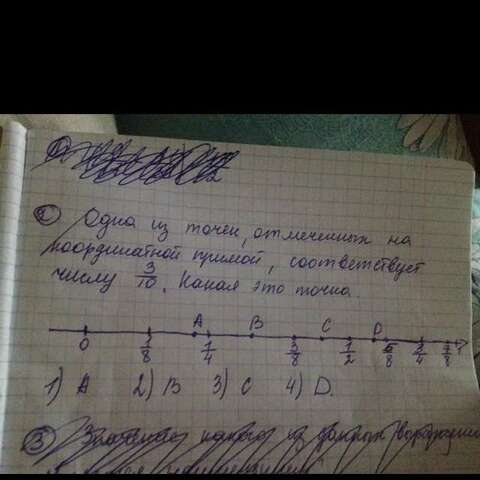 ② Одна из точек, отмеченных на
координатной прямой, соответствует
числу 3/10. Какая это точка.
A B C D
0 1/8 1/4 3/8 1/2 5/8 2/4 7/8 1
1) A 2) B 3) C 4) D.
③ Значение какого из данных